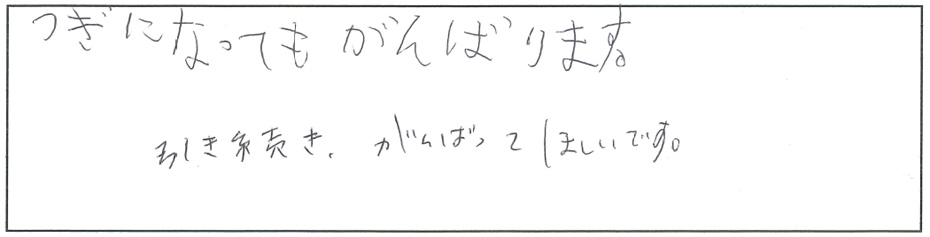 つぎになってもがんばります。
引き続き、がんばってほしいです。